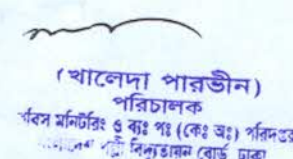 (খালেদা পারভীন)
পরিচালক
পবিস মনিটরিং ও ব্যঃ পঃ (কেঃ অঃ) পরিদপ্তর
পল্লী বিদ্যুতায়ন বোর্ড ঢাকা